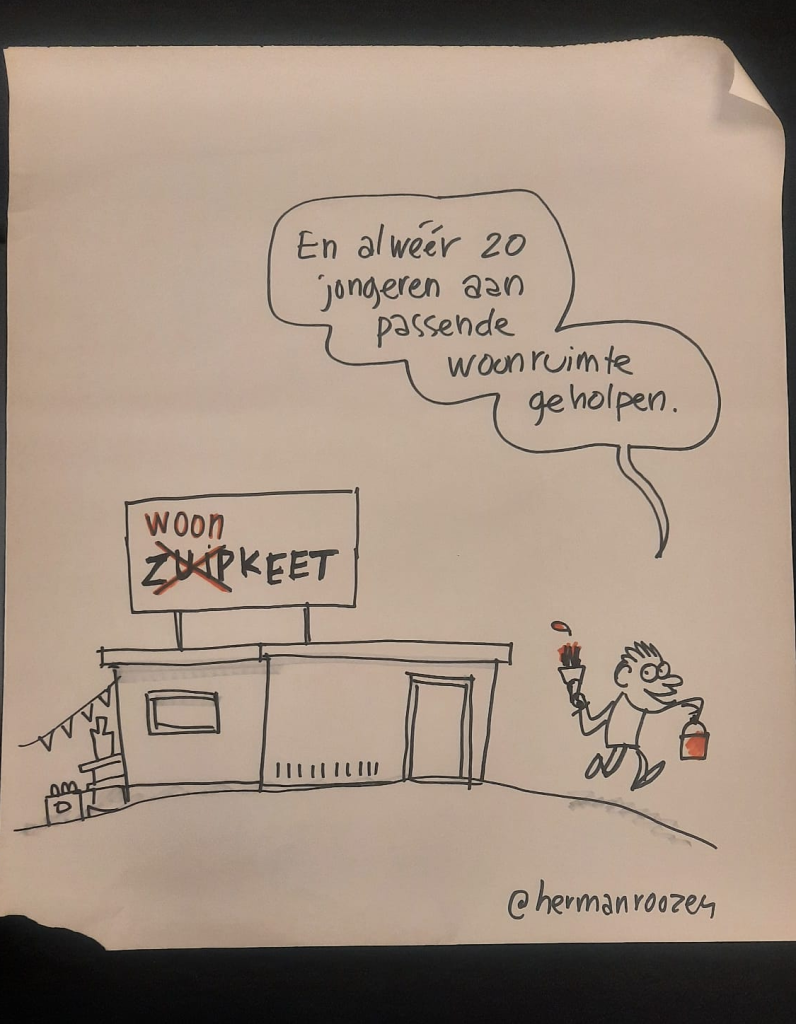 En alwéér 20
jongeren aan
passende
woonruimte
geholpen.
woon
ZUIPKEET
D
@hermanroozen